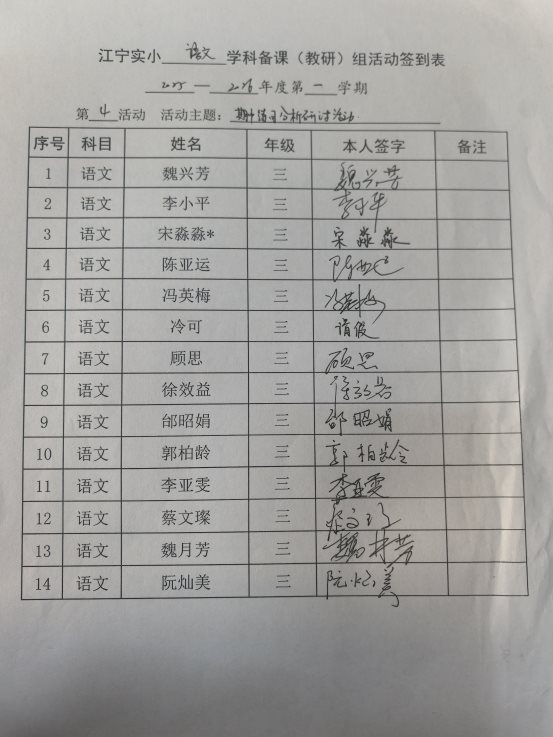 江宁实小 语文 学科备课（教研）组活动签到表
2025—2026年度第一学期
第4活动 活动主题：期中项目分析研讨活动
序号 科目 姓名 年级 本人签字 备注
1 语文 魏兴芳 三 魏兴芳
2 语文 李小平 三 李小平
3 语文 宋淼淼* 三 宋淼淼
4 语文 陈亚运 三 陈亚运
5 语文 冯英梅 三 冯英梅
6 语文 冷可 三 请假
7 语文 顾思 三 顾思
8 语文 徐效益 三 徐效益
9 语文 邰昭娟 三 邰昭娟
10 语文 郭柏龄 三 郭柏龄
11 语文 李亚雯 三 李亚雯
12 语文 蔡文璨 三 蔡文璨
13 语文 魏月芳 三 魏月芳
14 语文 阮灿美 三 阮灿美